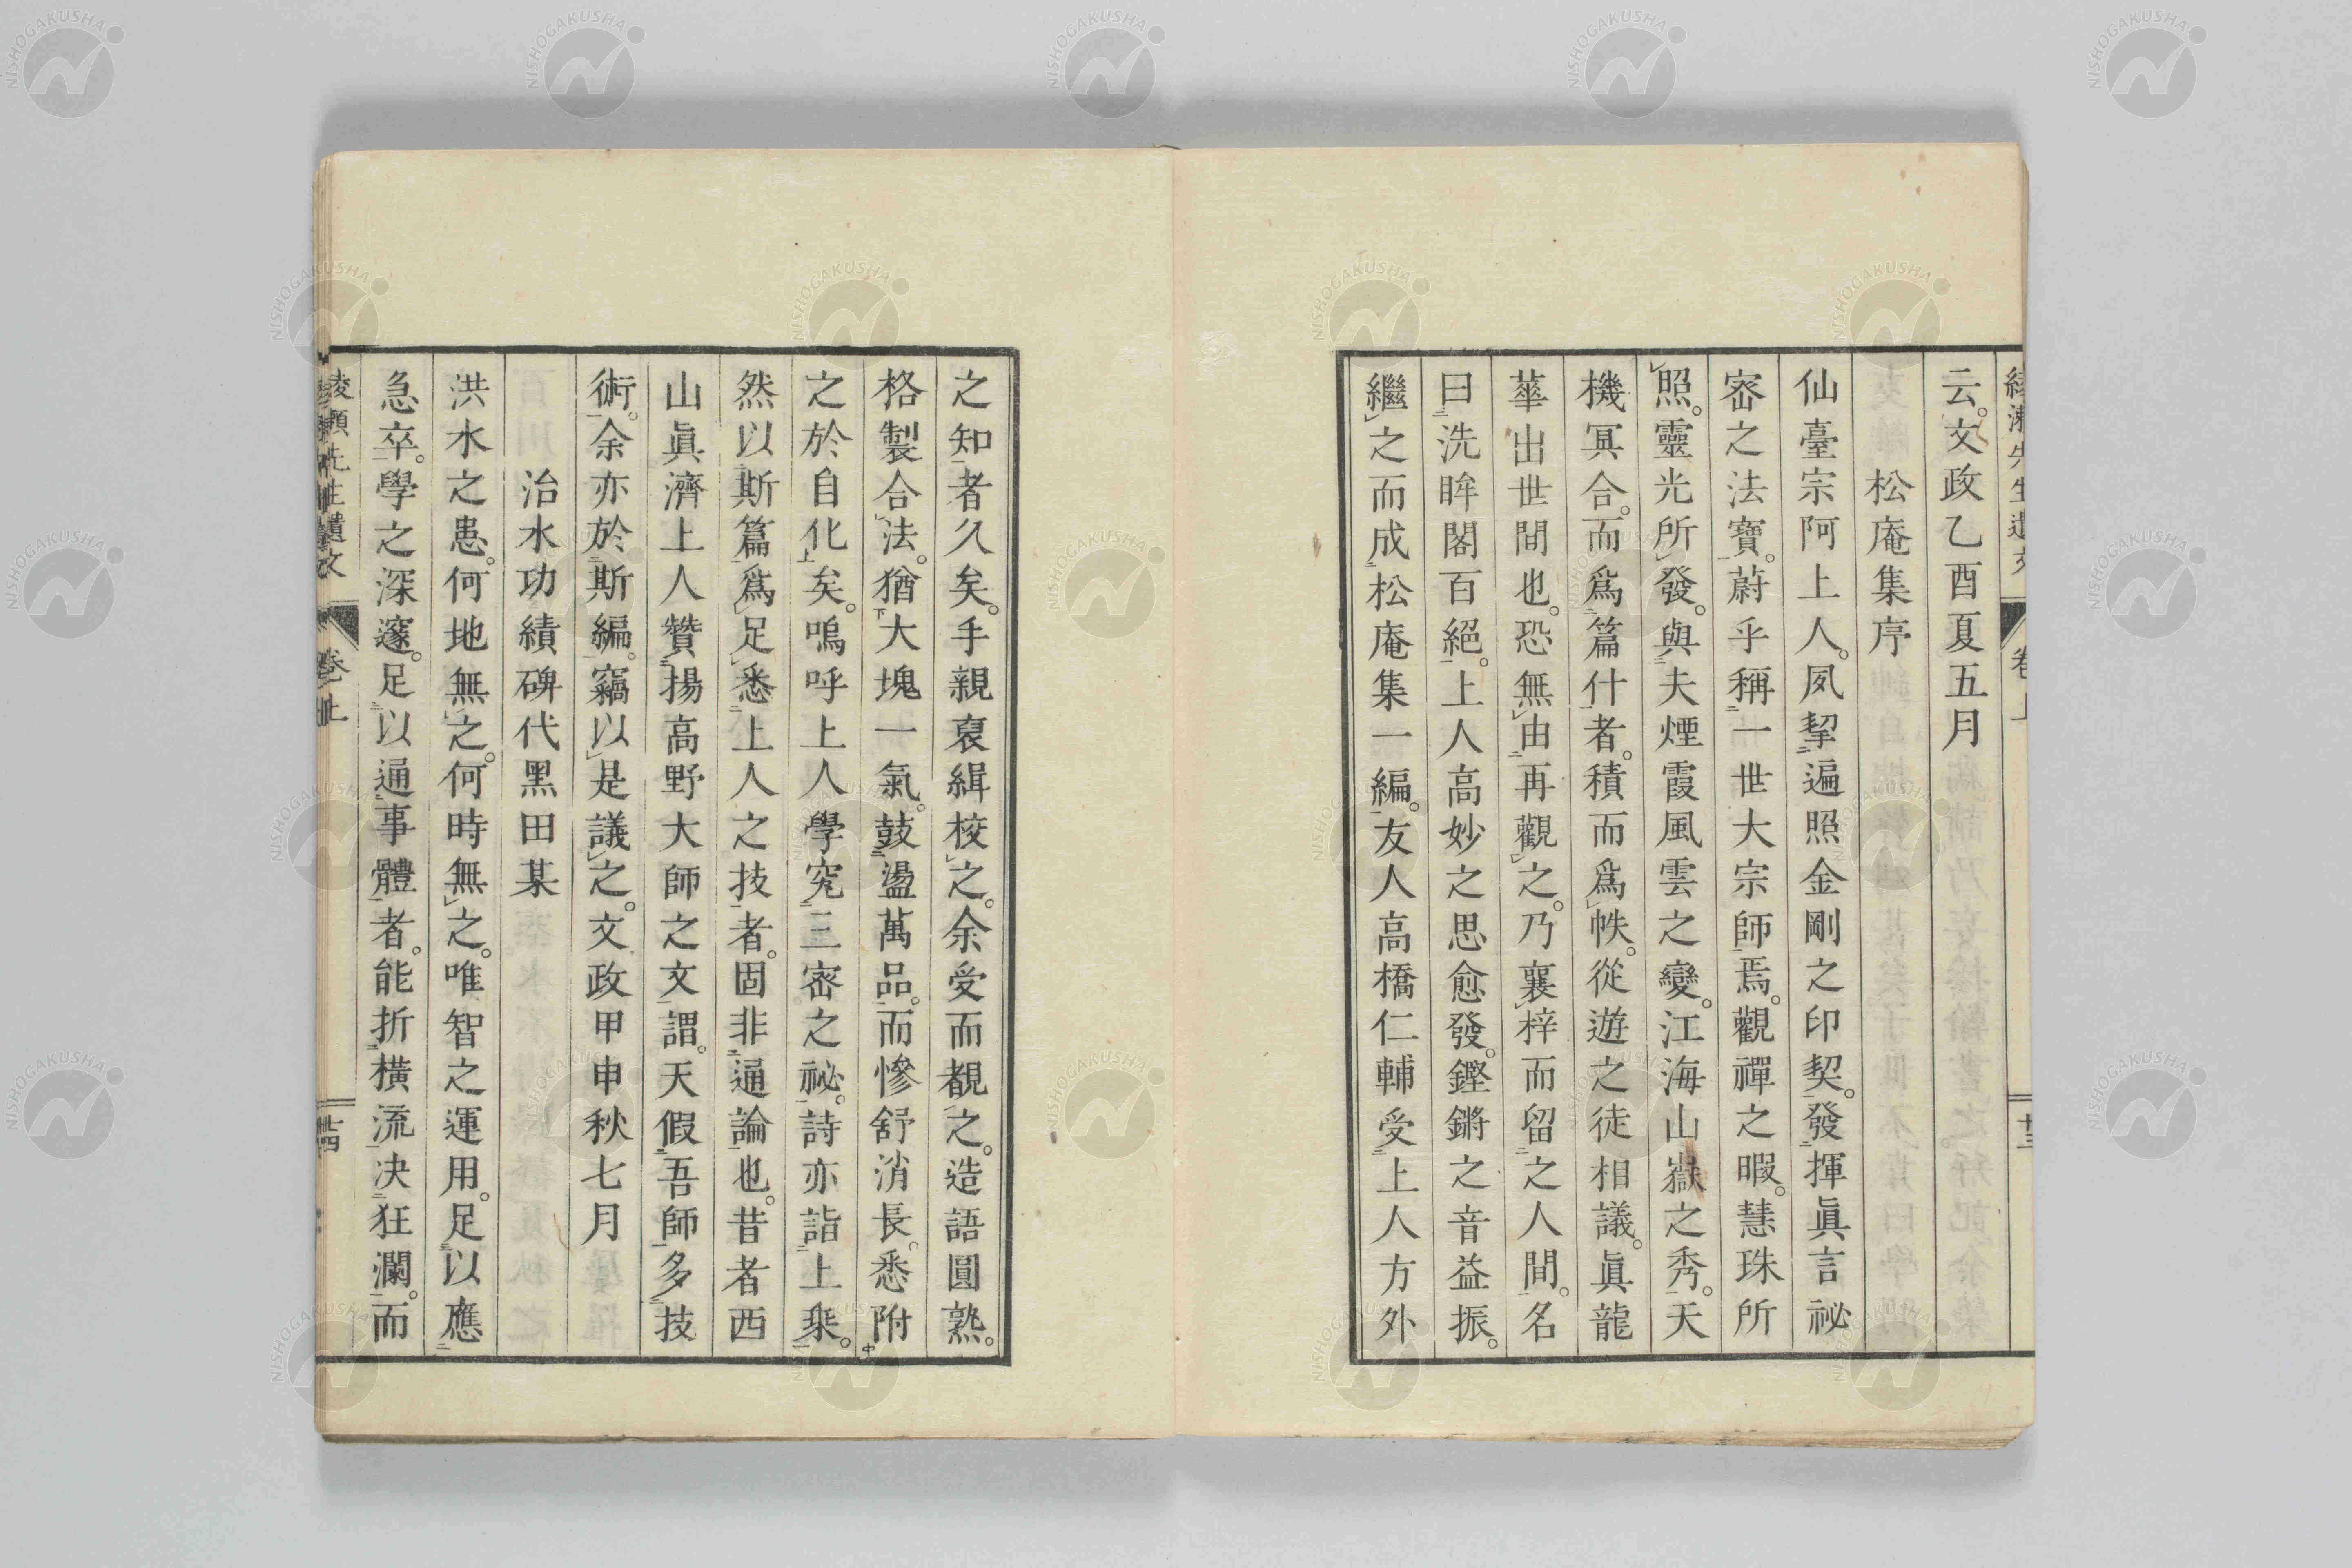 綾瀨先生遺文 卷上 十三
云。文政乙酉夏五月
松庵集序
仙臺宗阿上人。夙挈遍照金剛之印契。發揮眞言祕
密之法寶。蔚乎稱一世大宗師焉。觀禪之暇。慧珠所
照。靈光所發。與夫煙霞風雲之變。江海山嶽之秀。天
機冥合。而爲篇什者。積而爲帙。從遊之徒相議。眞龍
華出世間也。恐無由再觀之。乃襄梓而留之人間。名
曰洗眸閣百絕。上人高妙之思愈發。鏗鏘之音益振。
繼之而成松庵集一編。友人高橋仁輔受上人方外
之知者久矣。手親裒緝校之。余受而覩之。造語圓熟。
格製合法。猶大塊一氣。鼓盪萬品。而慘舒消長。悉附
之於自化矣。嗚呼上人學究三密之祕。詩亦詣上乘。
然以斯篇爲足悉上人之技者。固非通論也。昔者西
山眞濟上人贊揚高野大師之文謂。天假吾師多技
術。余亦於斯編。竊以是議之。文政甲申秋七月
治水功績碑代黑田某
洪水之患。何地無之。何時無之。唯智之運用。足以應
急卒。學之深邃。足以通事體者。能折橫流決狂瀾。而
綾瀨先生遺文 卷上 十四
NISHOGAKUSHA